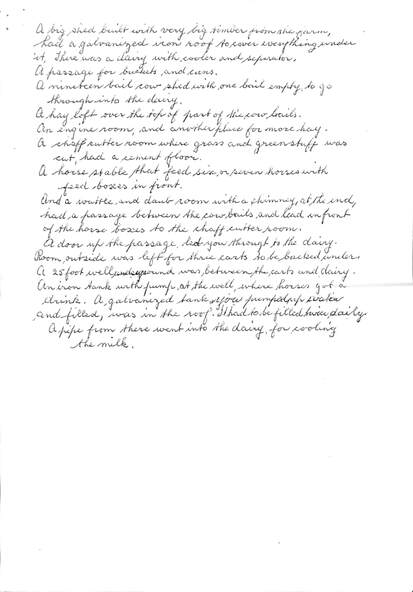 A big shed built with very big timber from the farm,
had a galvanized iron roof to cover everything under
it. There was a dairy with cooler and seperator.
A passage for buckets and cans.
A nineteen bail cow shed with one bail empty to go
through into the dairy.
A hay loft over the top of part of the cow bails.
An engine room, and another place for more hay.
A chaff cutter room where grass and greenstuff was
cut, had a cement floor.
A horse stable that feed six or seven horses with
feed boxes in front.
And a wattle and daub room with a chimney at the end,
had a passage between the cow bails and lead in front
of the horse boxes to the chaff cutter room.
A door up the passage, led you through to the dairy.
Room outside was left for three carts to be backed under.
A 25 foot well underground was between the carts and dairy.
An iron tank with pump at the well, where horses got a
drink. A galvanized tank you pumped up water
and filled, was in the roof. It had to be filled twice daily.
A pipe from there went into the dairy for cooling
the milk.